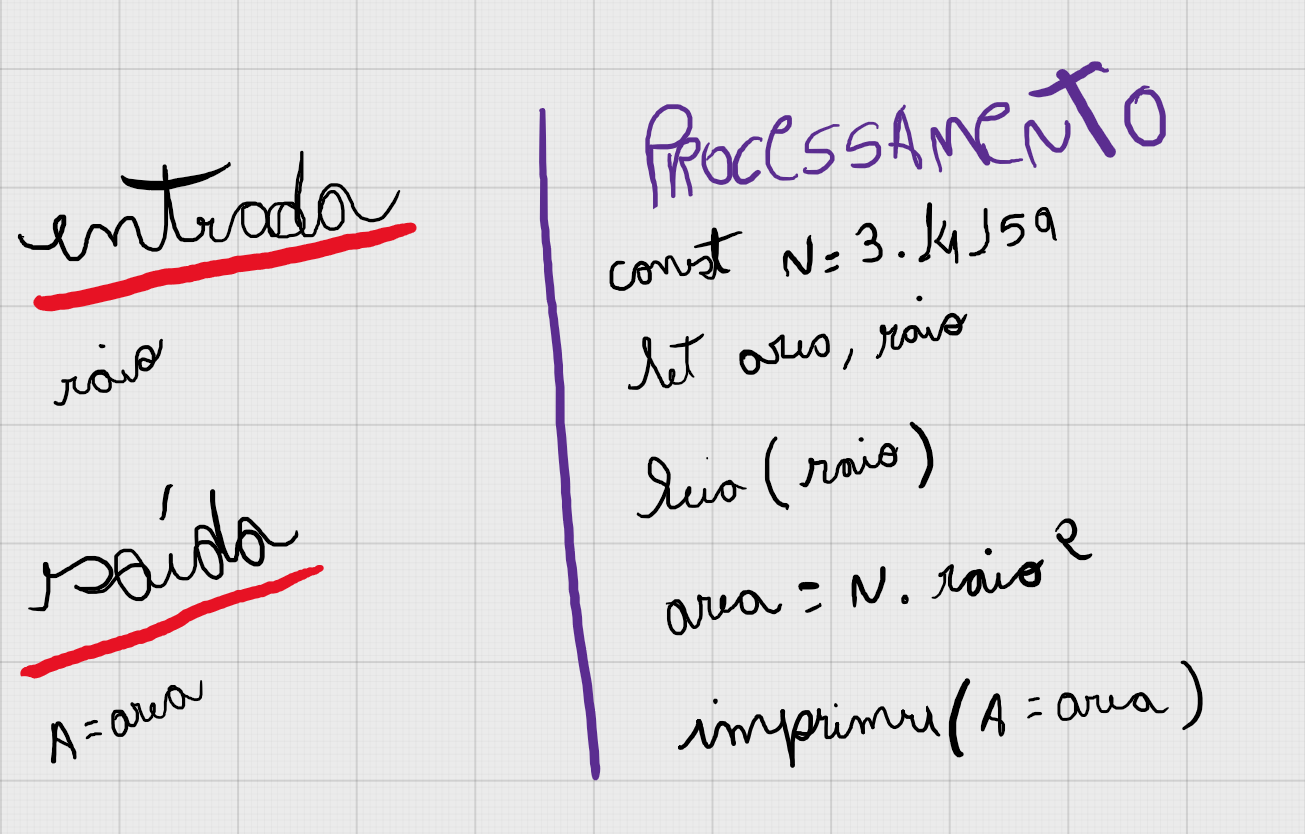 entrada
raio
saída
A = area
PROCESSAMENTO
const N = 3.14159
let area, raio
leia (raio)
area = N. raio²
imprimir (A = area)